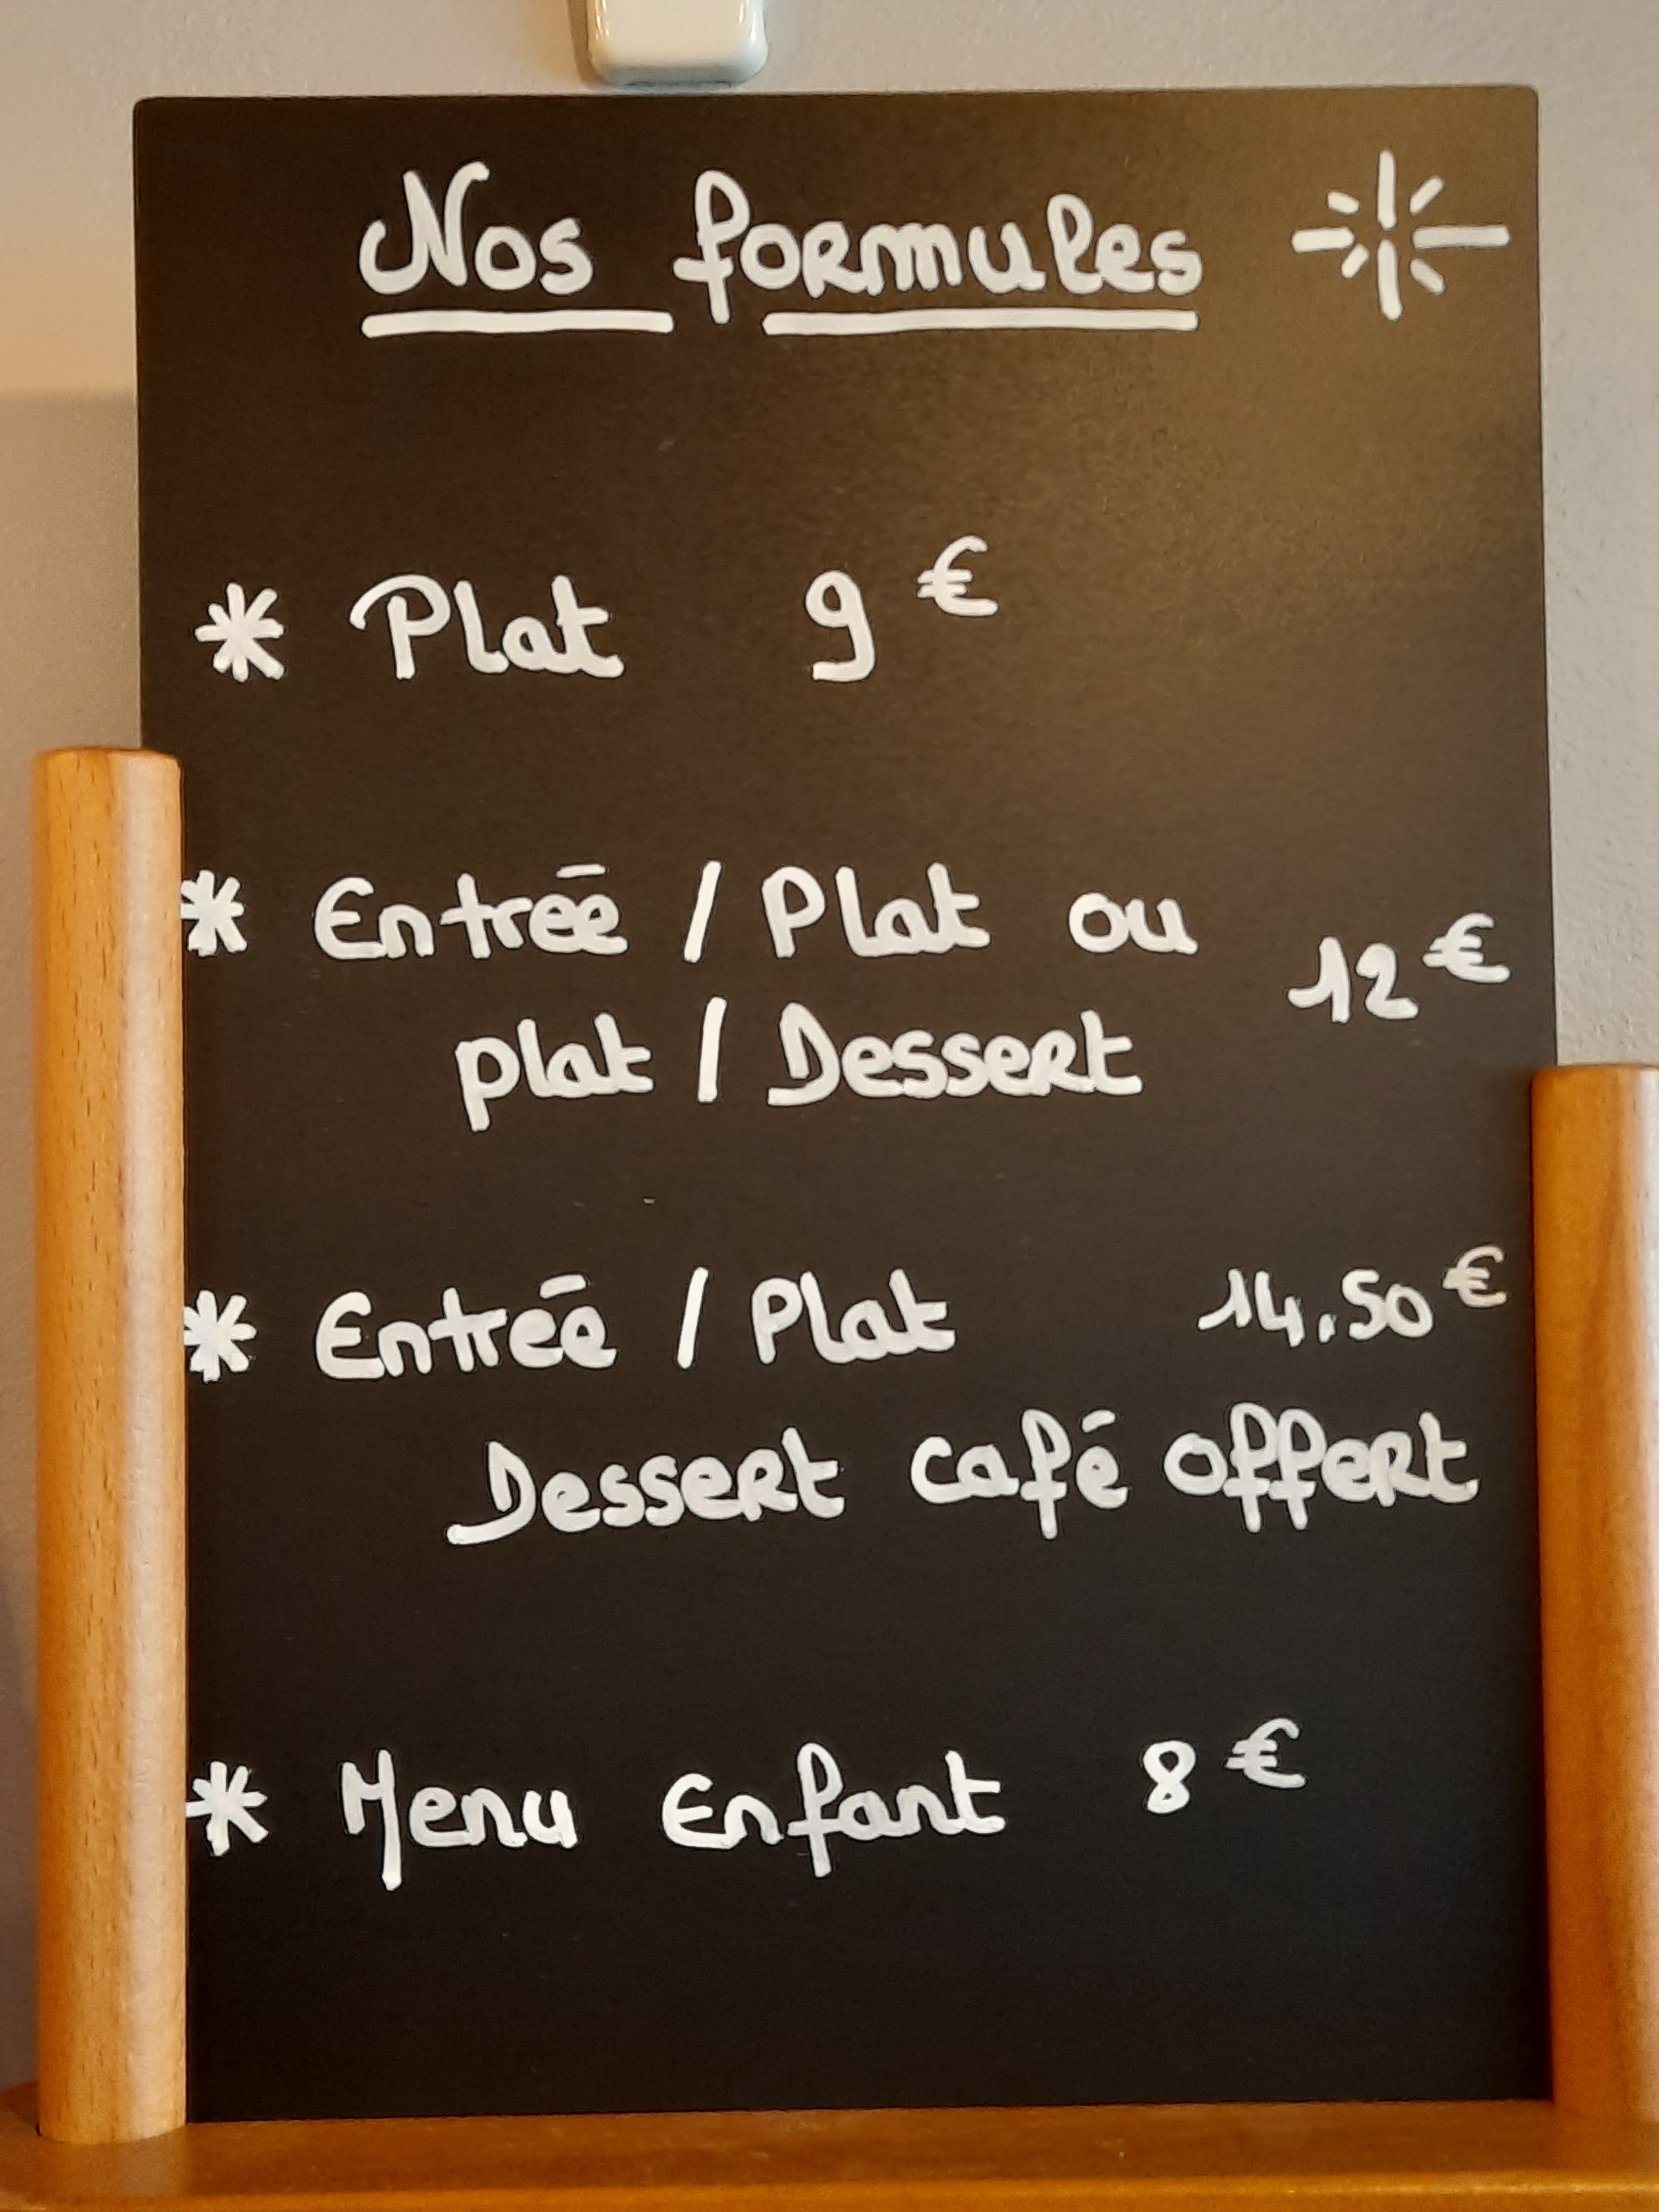 Nos formules
* Plat 9 €
* Entrée / Plat ou 12 €
plat / Dessert
* Entrée / Plat 14.50 €
Dessert café offert
* Menu Enfant 8 €